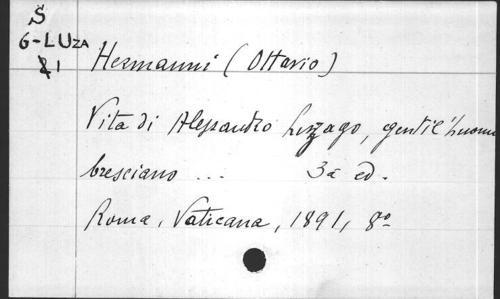 S
6-LUZA
21
Hermanni (Ottavio)
Vita di Alessandro Luzzago, gentil'huomo
bresciano ... 3a ed.
Roma, Vaticana, 1891, 8º